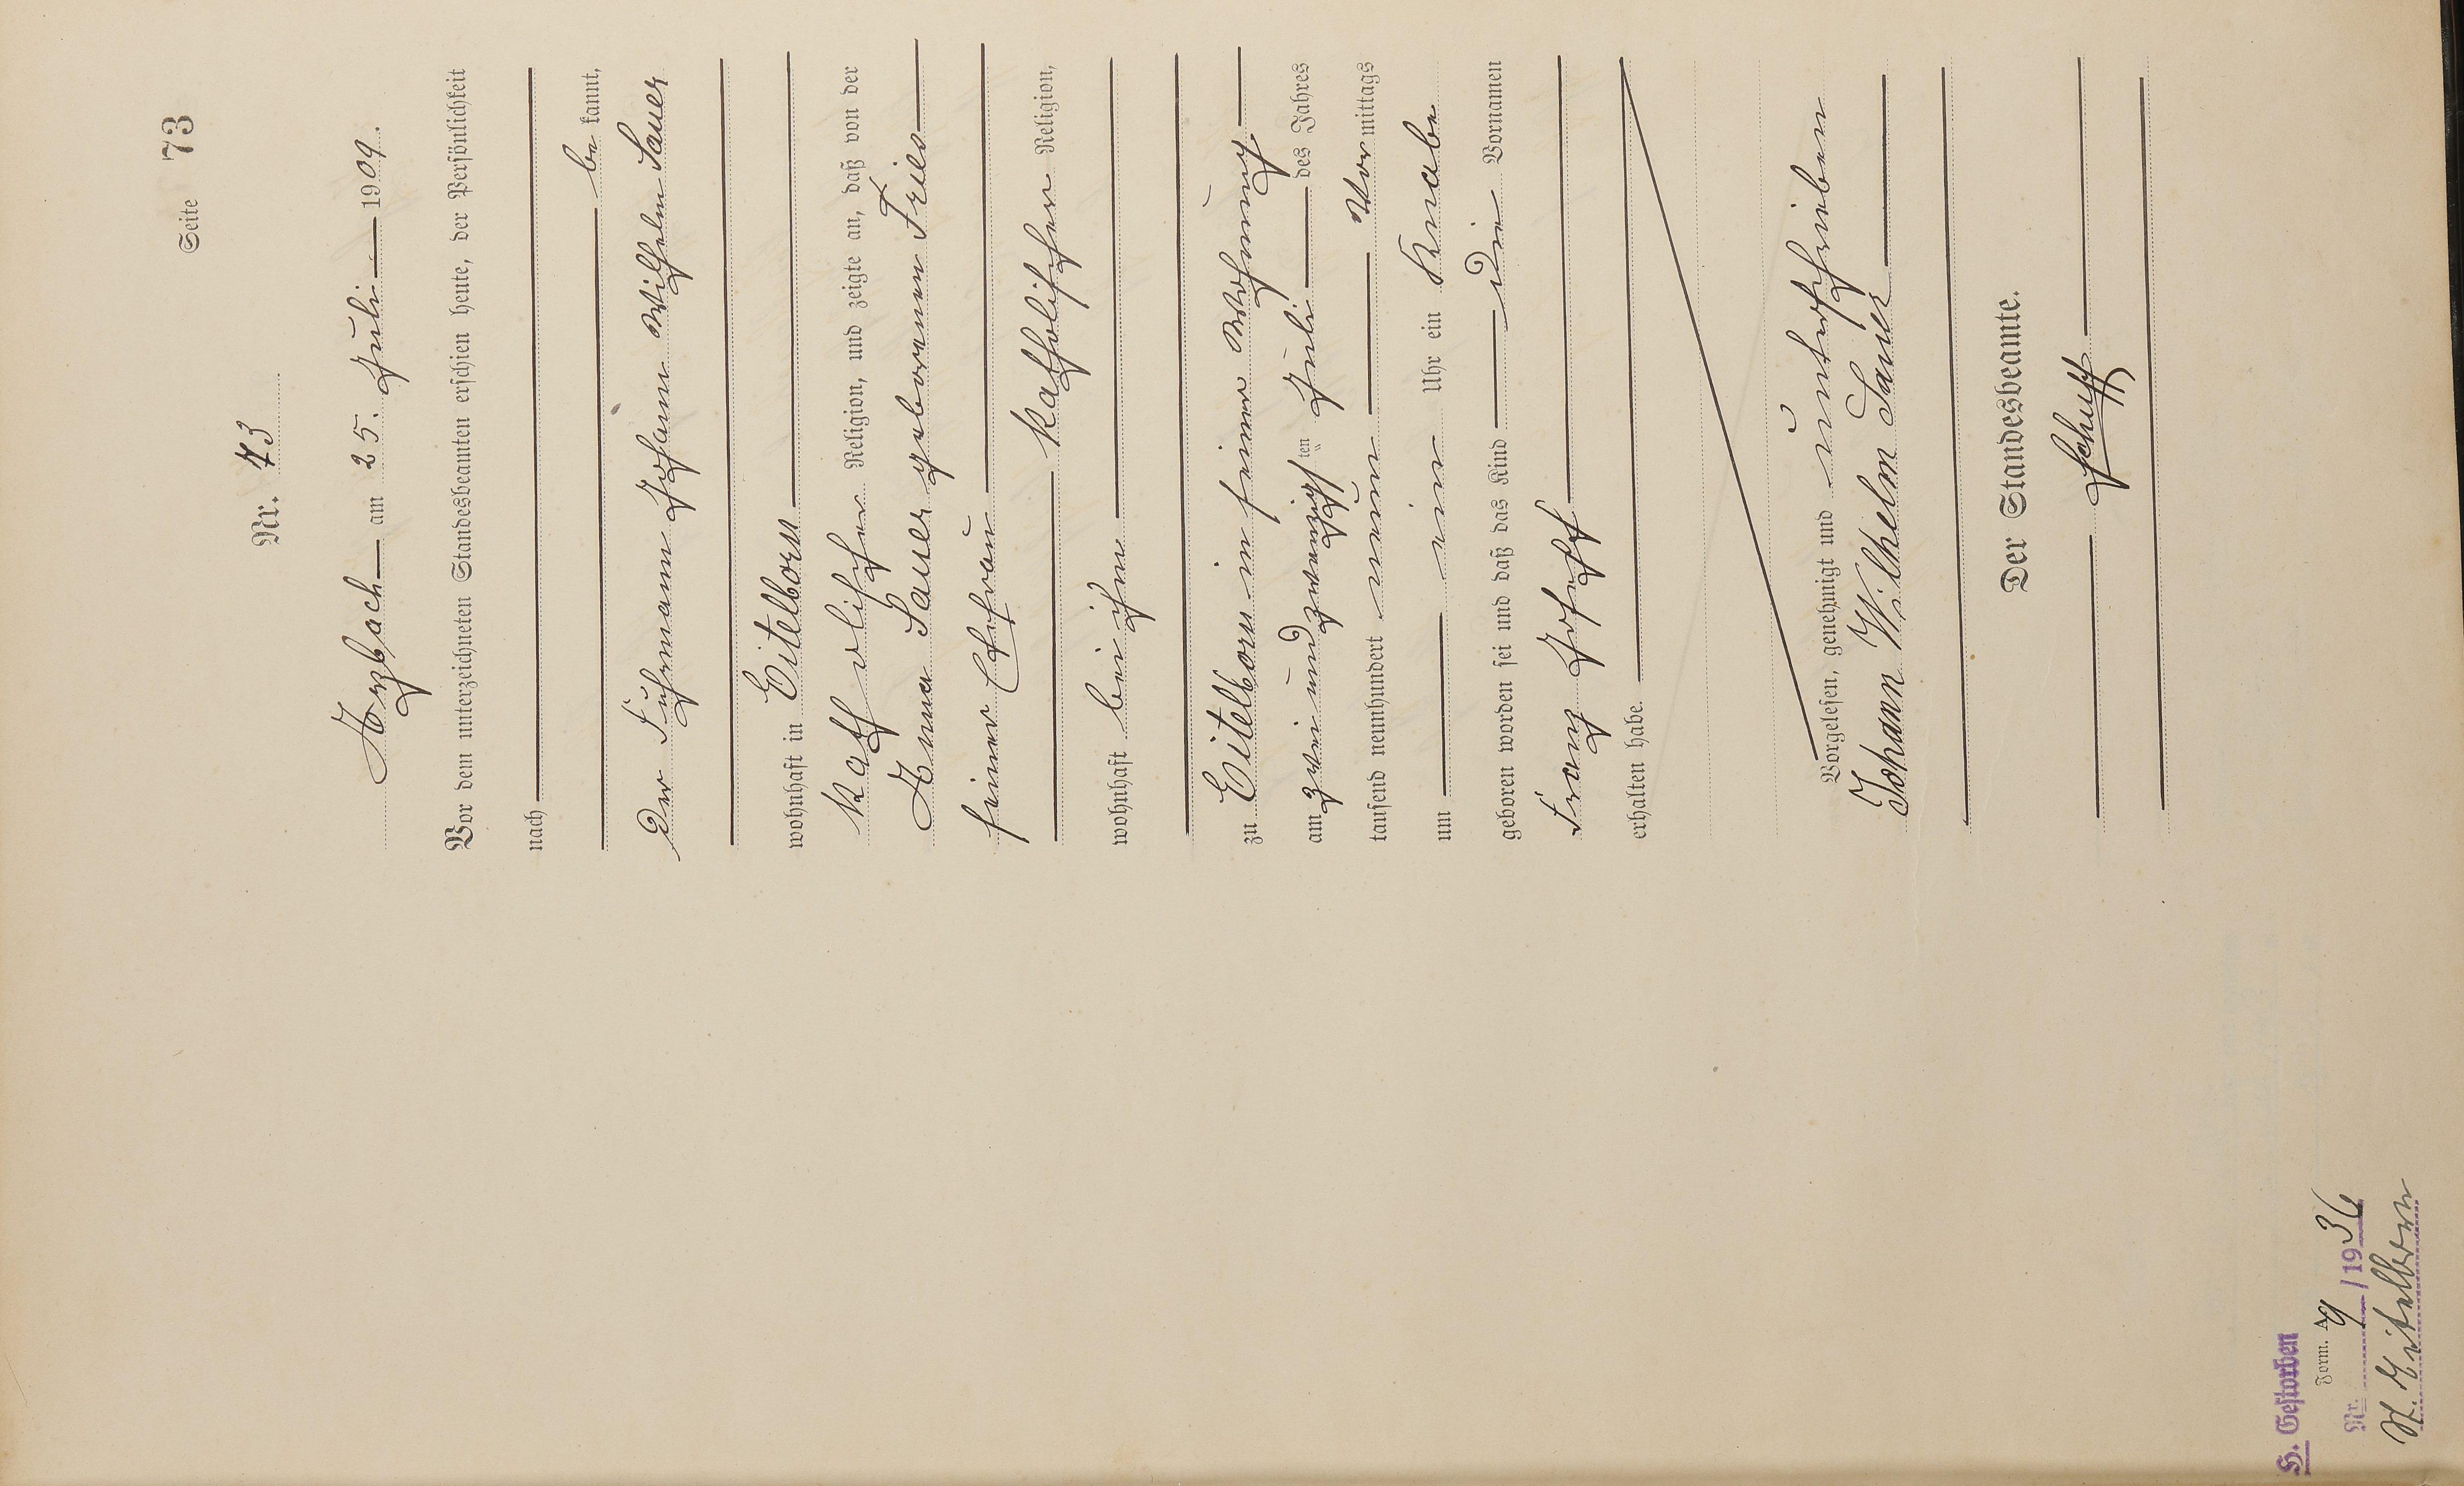 Seite 73
Nr. 73
Arzbach am 25. Juli 1909.
Vor dem unterzeichneten Standesbeamten erschien heute, der Persönlichkeit
nach
be kannt,
der Fuhrmann Johann Wilhelm Sauer
wohnhaft in Eitelborn
katholischer Religion, und zeigte an, daß von der
Anna Sauer geborenen Fries
seiner Ehefrau
katholischer Religion,
wohnhaft bei ihm
zu Eitelborn in seiner Wohnung
am zwei und zwanzigsten Juli des Jahres
tausend neunhundert neun Vor mittags
um ein Uhr ein Knabe
geboren worden sei und daß das Kind die Vornamen
Franz Josef
erhalten habe.
Vorgelesen, genehmigt und unterschrieben
Johann Wilhelm Sauer
Der Standesbeamte.
Schupp
H. Gestorben
Form. A
Nr. 9 / 1936
St. Eitelborn